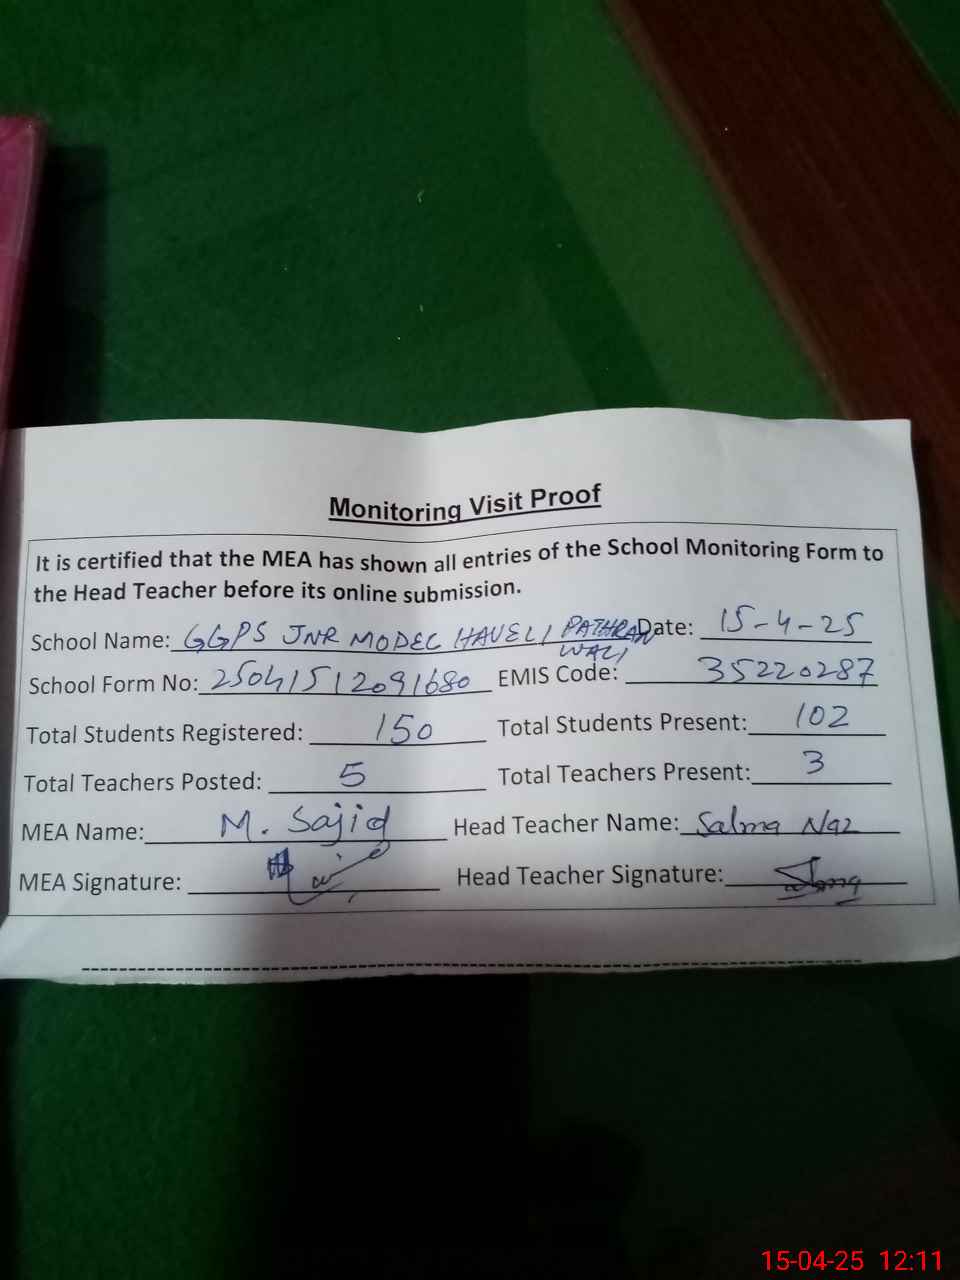 Monitoring Visit Proof
It is certified that the MEA has shown all entries of the School Monitoring Form to
the Head Teacher before its online submission.
School Name: GGPS JNR MODEL HAVELI PATHRAN WALI Date: 15-4-25
School Form No: 25041512091680 EMIS Code: 35220287
Total Students Registered: 150 Total Students Present: 102
Total Teachers Posted: 5 Total Teachers Present: 3
MEA Name: M. Sajid Head Teacher Name: Salma Naz
MEA Signature: Head Teacher Signature:
15-04-25 12:11